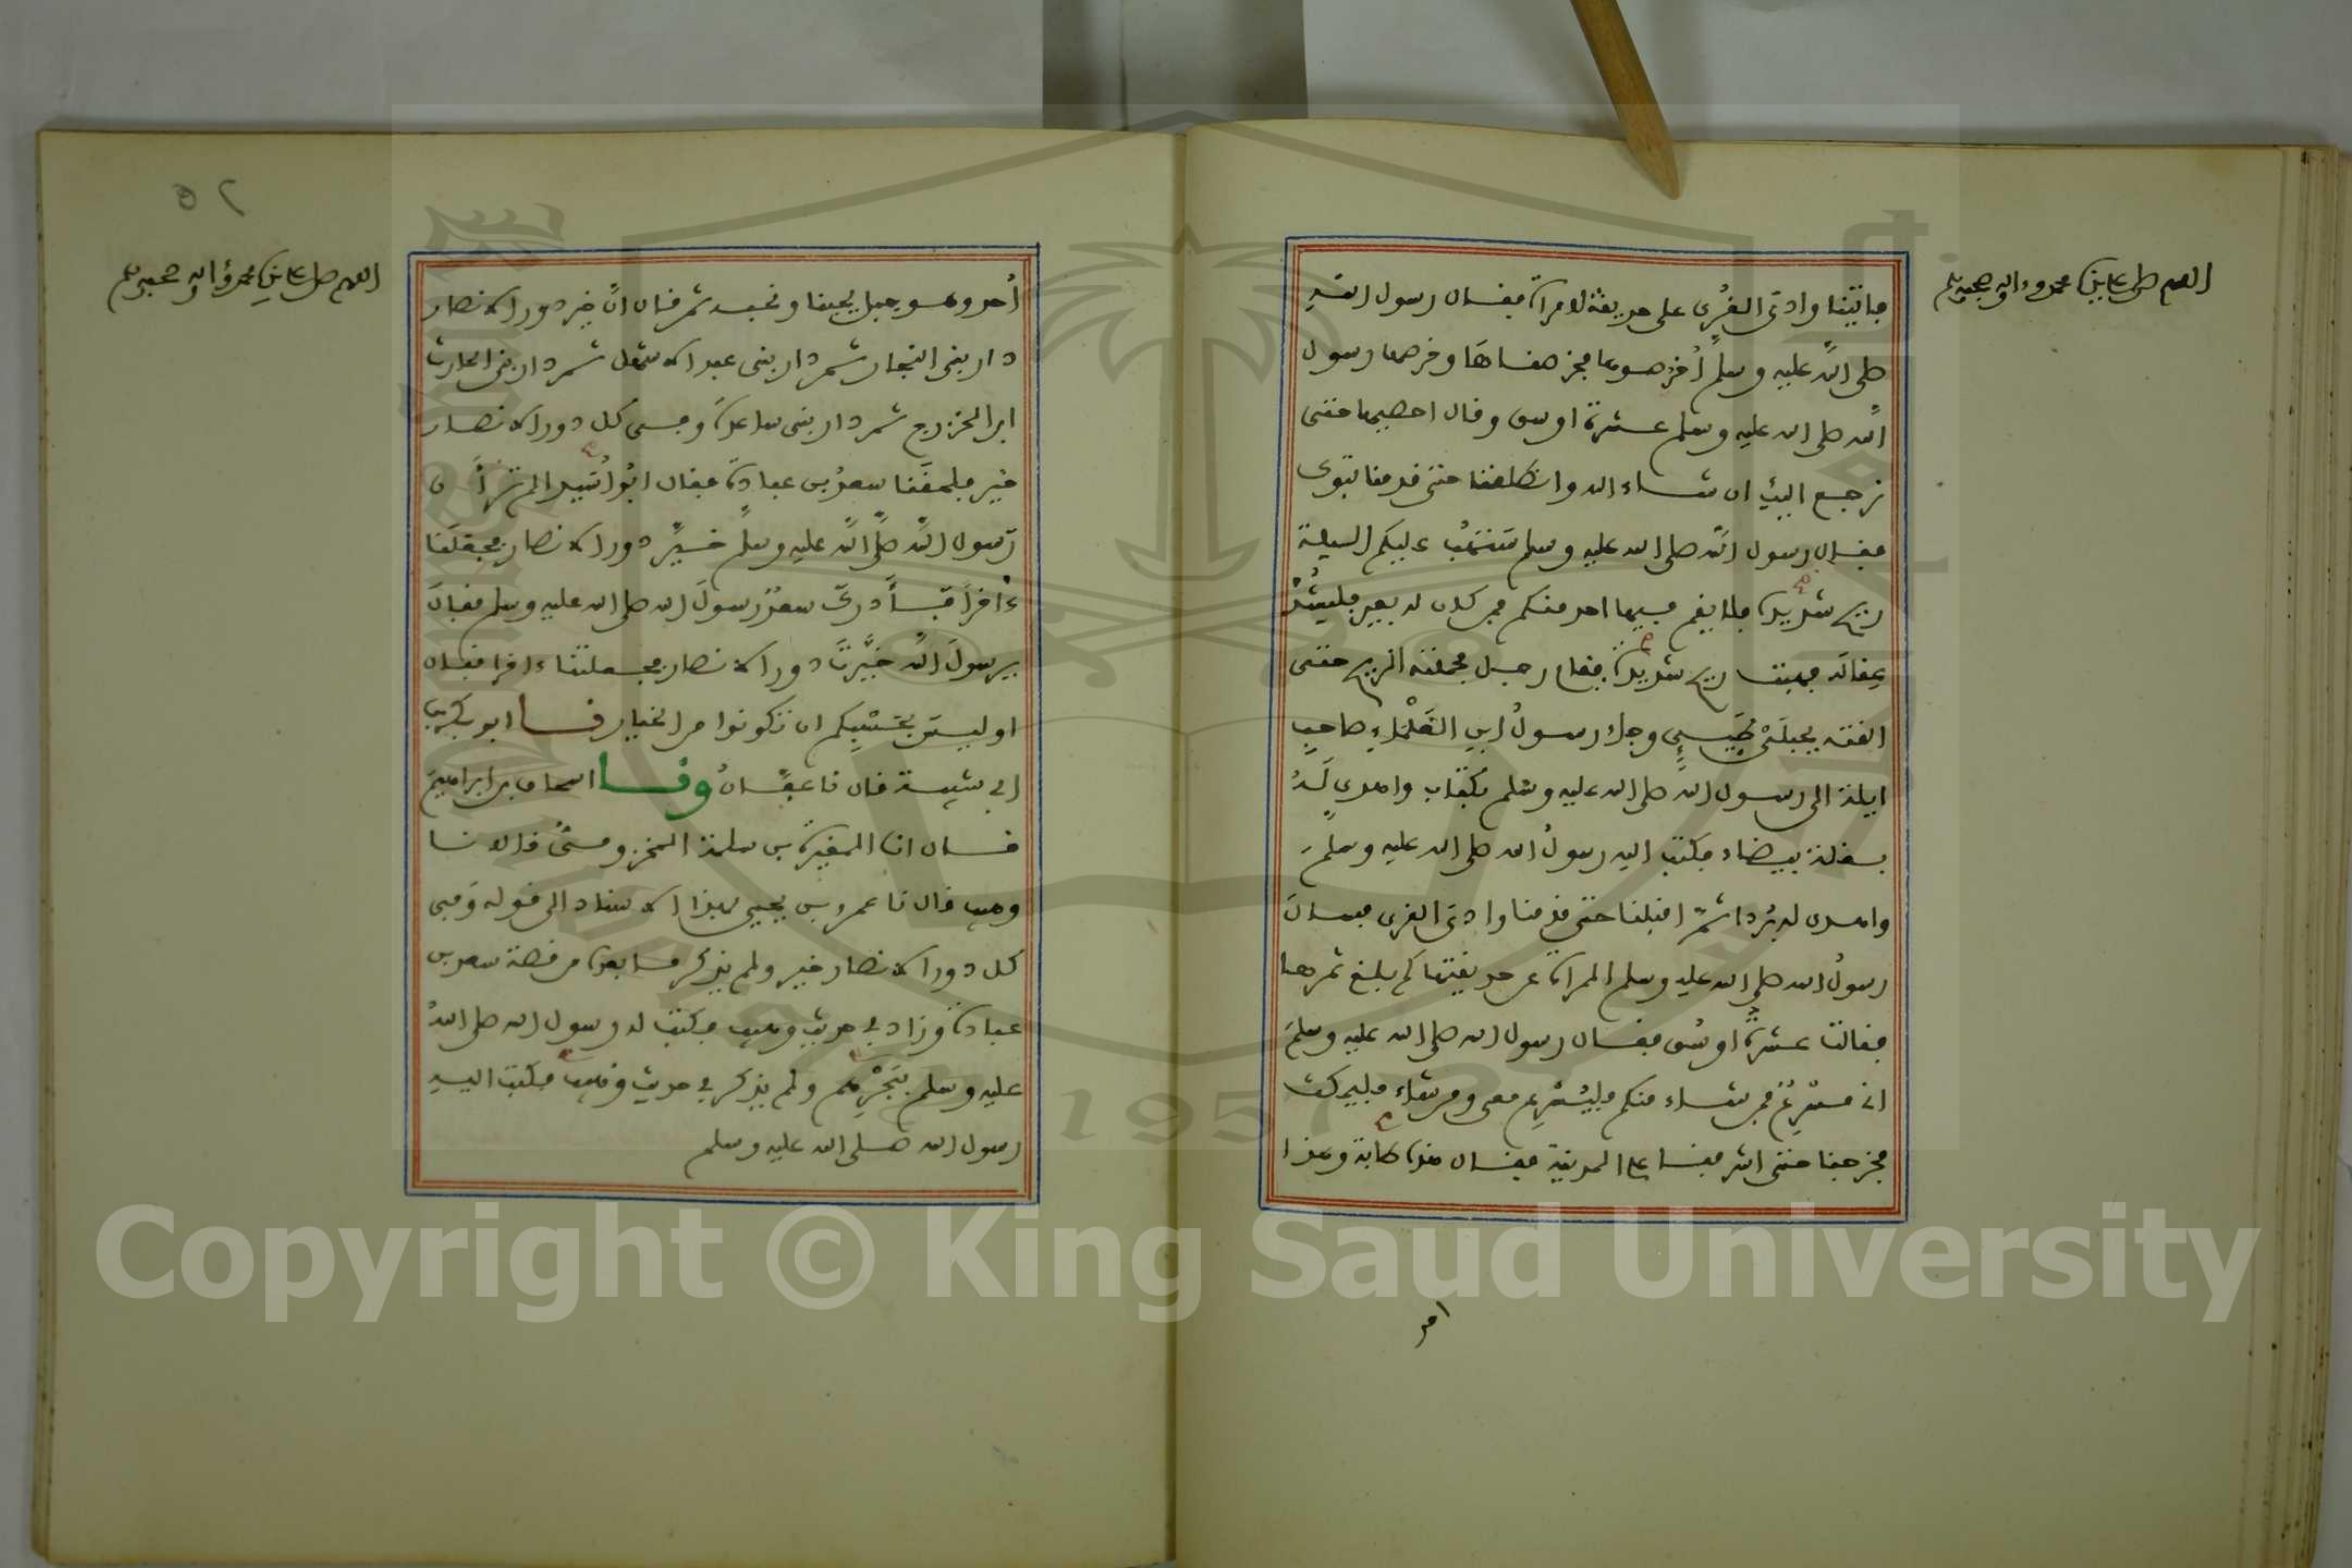 اللهم صل على سيدنا محمد وءاله وصحبه وسلم
فاتينا وادى القرى على حديقة لامراة فقال رسول الله
صلى الله عليه وسلم اخرصوها فخرصناها وخرصها رسول
الله صلى الله عليه وسلم عشرة اوسق وقال احصيها حتى
نرجع اليك ان شاء الله وانطلقنا حتى قدمنا تبوك
فقال رسول الله صلى الله عليه وسلم ستهب عليكم الليلة
ريح شديدة فلا يقم فيها احد منكم فمن كان له بعير فليشد
عقاله فهبت ريح شديدة فقام رجل فحملته الريح حتى
القته بجبلي طيء وجاء رسول ابن العلماء صاحب
ايلة الى رسول الله صلى الله عليه وسلم بكتاب واهدى له
بغلة بيضاء فكتب اليه رسول الله صلى الله عليه وسلم
واهدى له بردا ثم اقبلنا حتى قدمنا وادى القرى فسال
رسول الله صلى الله عليه وسلم المراة عن حديقتها كم بلغ ثمرها
فقالت عشرة اوسق فقال رسول الله صلى الله عليه وسلم
انى مسرع فمن شاء منكم فليسرع معى ومن شاء فليمكث
فخرجنا حتى اشرفنا على المدينة فقال هذه طابة وهذا
احد
٥٢
اللهم صل على سيدنا محمد وءاله وصحبه وسلم
أحد وهو جبل يحبنا ونحبه ثم قال ان خير دور الانصار
دار بنى النجار ثم دار بنى عبد الاشهل ثم دار بنى الحارث
ابن الخزرج ثم دار بنى ساعدة وفى كل دور الانصار
خير فلحقنا سعد بن عبادة فقال ابو اسيد الم تر أن
رسول الله صلى الله عليه وسلم خير دور الانصار فجعلنا
ءاخرا فادرك سعد رسول الله صلى الله عليه وسلم فقال
يرسول الله خيرت دور الانصار فجعلتنا ءاخرا فقال
اوليس بحسبكم ان تكونوا من الخيار نـا ابو بكر بن
ابى شيبة قال نا عفان ونـا اسحاق بن ابراهيم
قال انا المغيرة بن سلمة المخزومى قالا نا
وهيب قال نا عمرو بن يحيى بهذا الاسناد الى قوله وفى
كل دور الانصار خير ولم يذكر ما بعده من قصة سعد بن
عبادة وزاد فى حديث وهيب فكتب له رسول الله صلى الله
عليه وسلم ببحرهم ولم يذكر فى حديث وهيب فكتب اليه
رسول الله صلى الله عليه وسلم
1957
Copyright © King Saud University